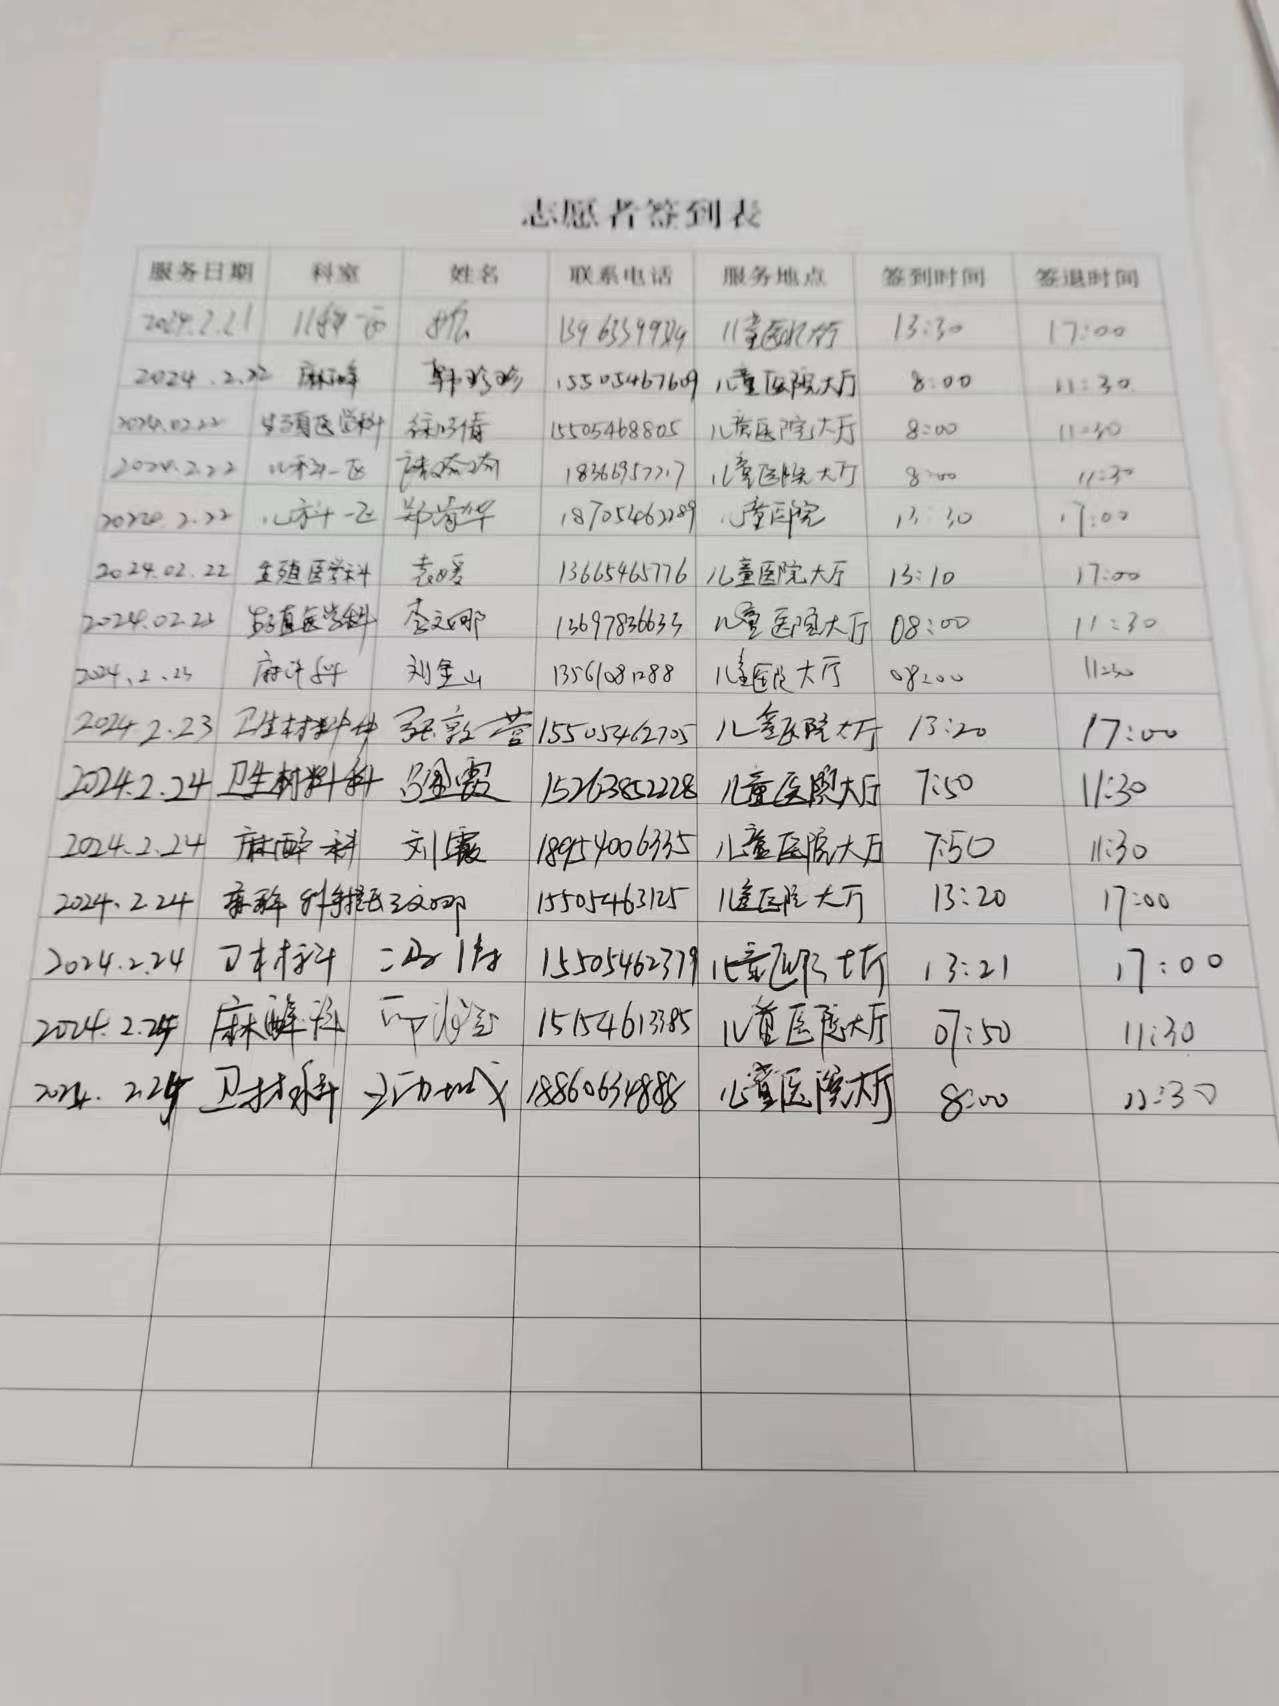 志愿者签到表
服务日期 科室 姓名 联系电话 服务地点 签到时间 签退时间
2024.2.21 儿科一区 儿童医院大厅 13:30 17:00
2024.2.22 麻醉 韩珍珍 15505467609 儿童医院大厅 8:00 11:30
2024.02.22 生殖医学科 15505468805 儿童医院大厅 8:00 11:30
2024.2.22 儿科一区 18366957217 儿童医院大厅 8:00 11:30
2024.2.22 儿科一区 18705462289 儿童医院 13:30 17:00
2024.02.22 生殖医学科 袁媛 13665465776 儿童医院大厅 13:10 17:00
2024.02.23 生殖医学科 李文娜 13697836633 儿童医院大厅 08:00 11:30
2024.2.23 麻醉科 刘金山 13561081288 儿童医院大厅 08:00 11:30
2024.2.23 卫生材料科 张敦营 15505462705 儿童医院大厅 13:20 17:00
2024.2.24 卫生材料科 15263852228 儿童医院大厅 7:50 11:30
2024.2.24 麻醉科 刘霞 18954006335 儿童医院大厅 7:50 11:30
2024.2.24 王文娜 15505463125 儿童医院大厅 13:20 17:00
2024.2.24 卫材科 15505462379 儿童医院大厅 13:21 17:00
2024.2.25 麻醉科 15154613385 儿童医院大厅 07:50 11:30
2024.2.25 卫材科 18860634888 儿童医院大厅 8:00 11:30